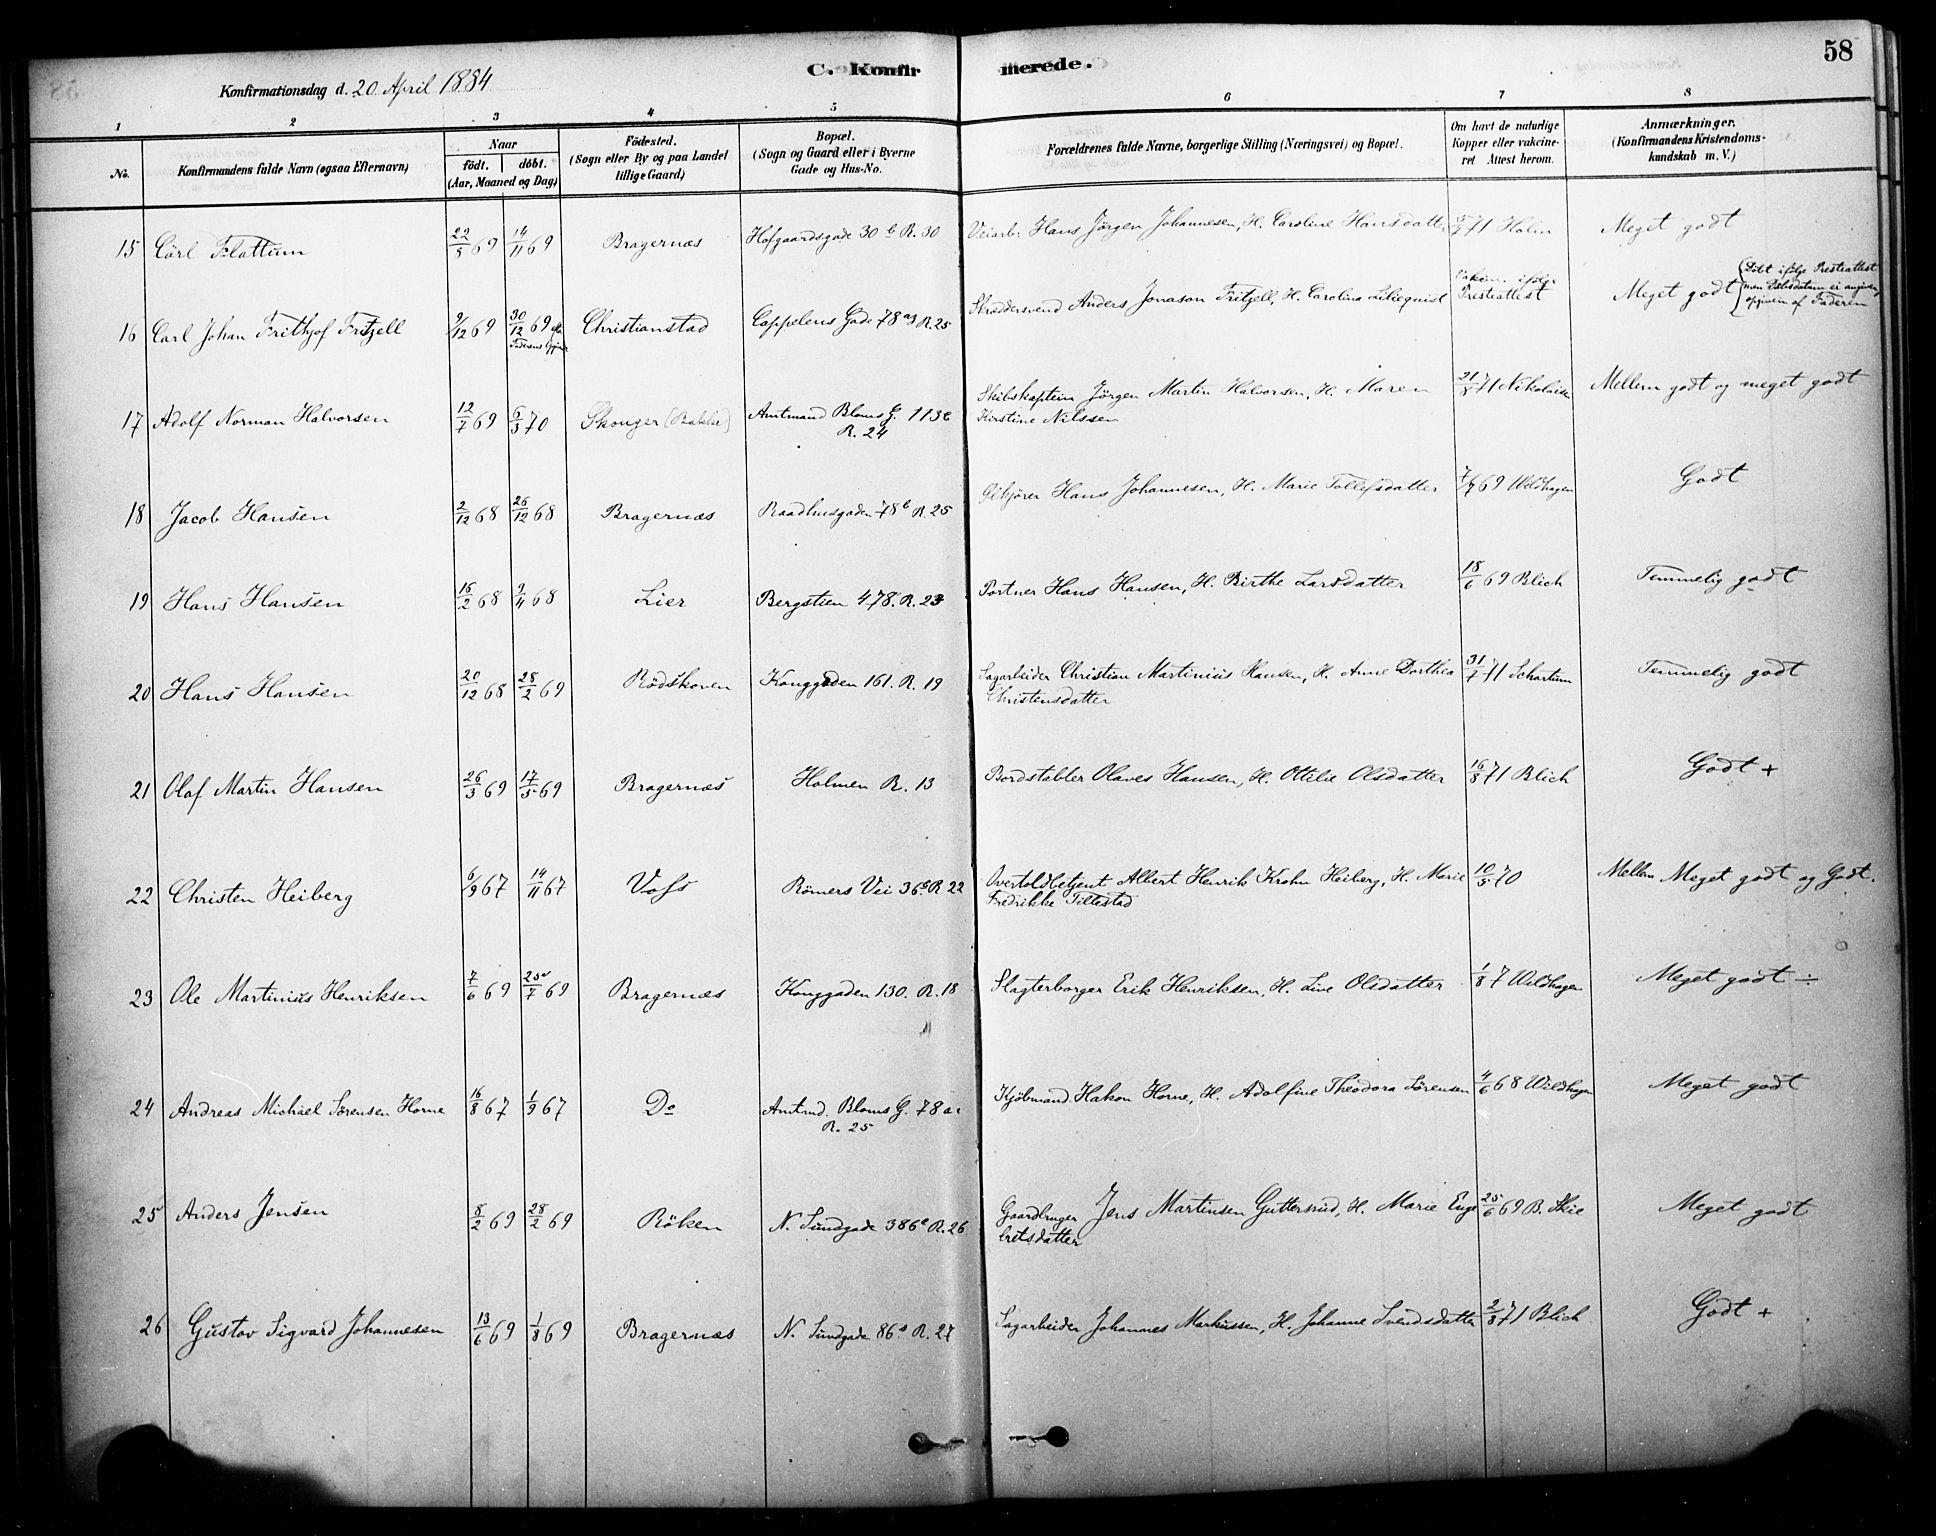 58
C. Konfirmerede.
Konfirmationsdag d. 20 April 1884
1 2 3 4 5 6 7 8
No. Konfirmandens fulde Navn (ogsaa Efternavn) Naar født. døbt. (Aar, Maaned og Dag) Fødested. (Sogn eller By og paa Landet tillige Gaard) Bopæl. (Sogn og Gaard eller i Byerne Gade og Hus-No. Forældrenes fulde Navne, borgerlige Stilling (Næringsvei) og Bopæl. Om havt de naturlige Kopper eller vakcineret Attest herom. Anmærkninger. (Konfirmandens Kristendomskundskab m. V.)
15 Carl Flattum 22/5 69 14/11 69 Bragernæs Hofgaardsgade 30 b R. 30 Veiarb. Hans Jørgen Johannesen, H. Caroline Hansdatter 71 Holm Meget godt
16 Carl Johan Frithjof Fritzell 9/12 69 30/12 69 Faderens Christianstad Cappelens Gade 78 R. 25 Skræddersvend Anders Jonason Fritzell, H. Carolina Liliequist Vakcin. ifølge Presteattest Meget godt (Døbt ifølge Presteattest men Daabsdatum ei angiven, opgiven af Faderen
17 Adolf Norman Halvorsen 12/7 69 6/3 70 Skouger (Bakke) Amtmand Bloms G. 113 c
R. 24 Skibskaptein Jørgen Martin Halvorsen, H. Maren
Kirstine Nilssen 21/8 71 Nikolaisen Mellem godt og meget godt
18 Jacob Hansen 2/12 68 26/12 68 Bragernæs Raadhusgaden 78 b R. 25 Hans Johannesen, H. Marie Tollefsdatter 7/7 69 Wildhagen Godt
19 Hans Hansen 16/2 68 9/4 68 Lier Bergstien 478. R. 23 Portner Hans Hansen, H. Birthe Larsdatter 18/6 69 Blich Temmelig godt
20 Hans Hansen 20/12 68 28/2 69 Rödskoven Konggaden 161. R. 19 Sagarbeider Christian Martinius Hansen, H. Anne Dorthea
Christensdatter 31/7 71 Schartum Temmelig godt
21 Olaf Martin Hansen 26/3 69 17/5 69 Bragernæs Holmen R. 13 Bordstabler Olaves Hansen, H. Ottilie Olsdatter 16/8 71 Blich Godt +
22 Christen Heiberg 6/9 67 14/11 67 Voss Römers Vei 36 R. 22 Overtoldbetjent Albert Henrik Krohn Heiberg, H. Marie
Fredrikke Tiltestad 10/5 70 Mellem Meget godt og Godt.
23 Ole Martinius Henriksen 7/6 69 25/7 69 Bragernæs Konggaden 130. R. 18 Slagterborger Erik Henriksen, H. Line Olsdatter 1/8 7 Wildhagen Meget godt ÷
24 Andreas Michael Sørensen Horne 16/8 67 1/9 67 Do Amtmd. Bloms G. 78 a
R. 25 Kjöbmand Hakon Horne, H. Adolfine Theodora Sørensen 4/6 68 Wildhagen Meget godt
25 Anders Jensen 8/2 69 28/2 69 Röken N. Sundgade 386 R. 26 Gaardbruger Jens Martinsen Guttersrud, H. Marie Enge
bretsdatter 25/6 69 B. Skie Meget godt
26 Gustav Sigvard Johannesen 13/6 69 1/8 69 Bragernæs N. Sundgade 86 a R. 27 Sagarbeider Johannes Markussen, H. Johanne Svendsdatter 2/8 71 Blich Godt +